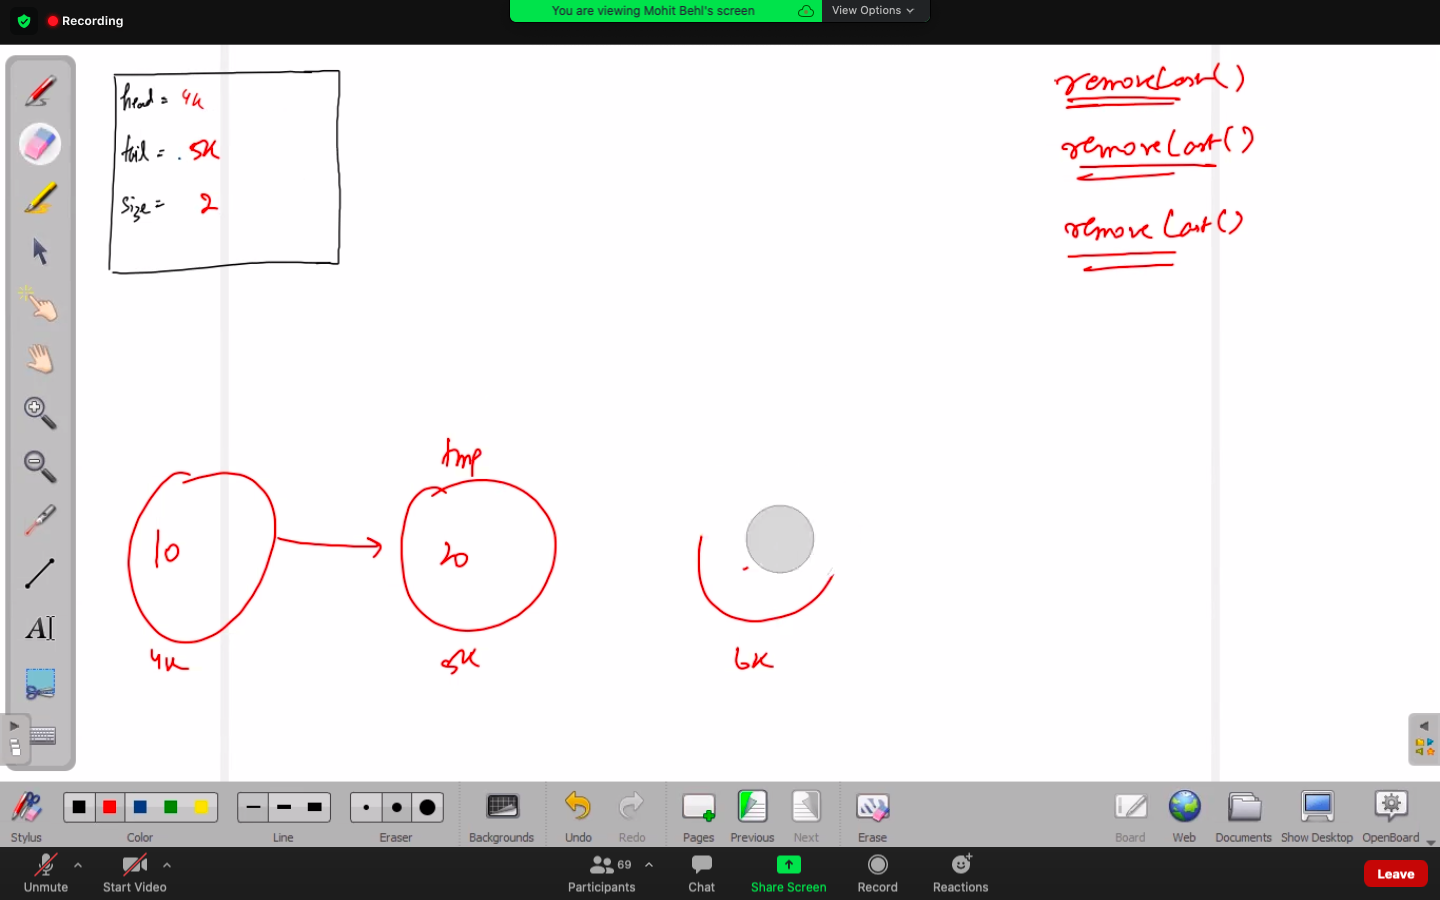 Recording
You are viewing Mohit Behl's screen
View Options
head = 4K
tail = . 5K
size = 2
removeLast()
removeLast()
removeLast()
tmp
10
20
4K
5K
6K
A
Stylus
Color
Line
Eraser
Backgrounds
Undo
Redo
Pages
Previous
Next
Erase
Board
Web
Documents
Show Desktop
OpenBoard
Unmute
Start Video
69
Participants
Chat
Share Screen
Record
Reactions
Leave